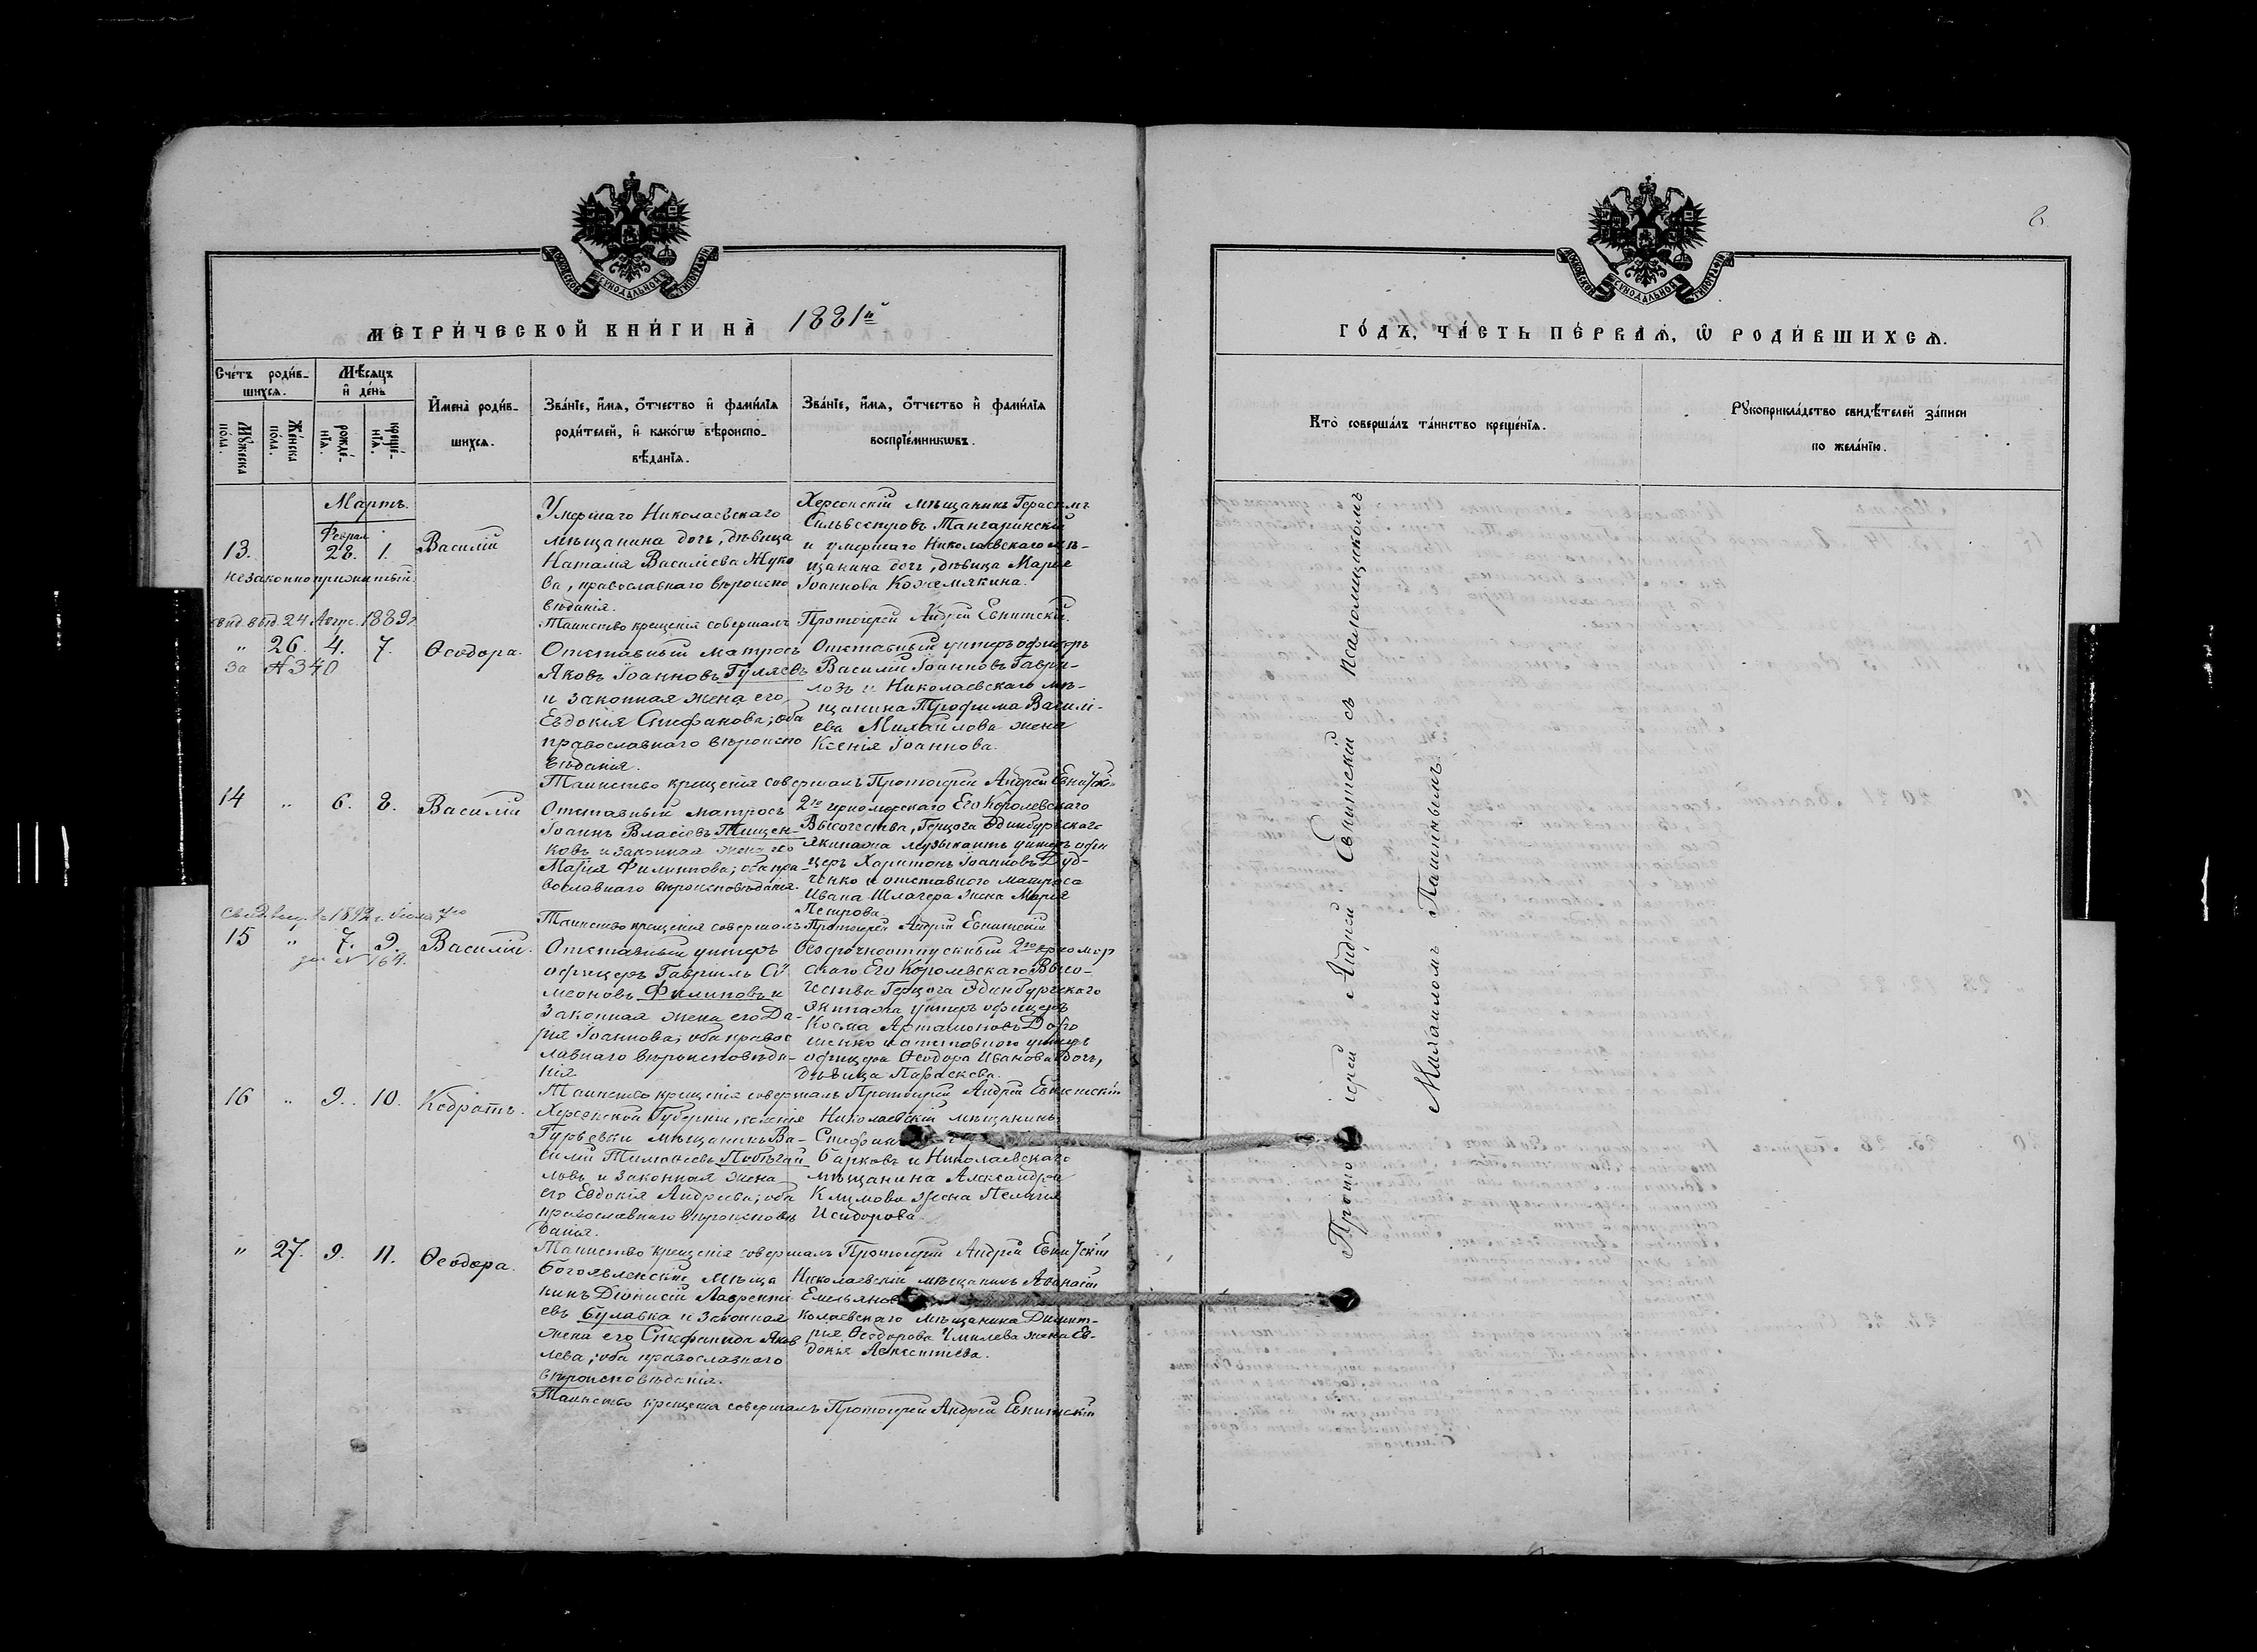 МОСКОВСКОЙ СѴНОДАЛЬНОЙ ТИПОГРАФІИ
МЕТРИ́ЧЕСКОЙ КНИ́ГИ НА̀ 1881й
Сче́тъ роди́в-
шихсѧ.
Мѣ́сѧцъ
и҆ де́нь
Мꙋ́жеска
по́ла.
Же́нска
по́ла.
рожде́-
нїѧ.
креще́-
нїѧ.
И҆мена̀ роди́в-
шихсѧ.
Зва́нїе, и҆́мѧ, ѻ҆́тчество и҆ фами́лїѧ
роди́телей, и҆ како́гѡ вѣроиспо-
вѣ́данїѧ.
Зва́нїе, и҆́мѧ, ѻ҆́тчество и҆ фами́лїѧ
воспрїе́мникѡвъ.
Мартъ.
Феврал
13. 28. 1. Василій
незаконнорожденный
Умершаго Николаевскаго
мѣщанина дочь, дѣвица
Наталія Василіева Жуко
ва, православнаго вѣроиспо
вѣданія.
Херсонскій мѣщанинъ Герасимъ
Сильвестровъ Тангаринскій
и умершаго Николаевскаго мѣ-
щанина дочь, дѣвица Марія
Іоаннова Кожемякина.
Таинство крещенія совершалъ Протоіерей Андрей Евнитскій.
свид. выд. 24 Авгус. 1889г.
" 26. 4. 7. Ѳеодора.
за №340
Отставный матросъ
Яковъ Іоанновъ Гуляевъ
и законная жена его
Евдокія Стефанова; оба
православнаго вѣроиспо
вѣданія.
Отставный унтеръ офицеръ
Василій Іоанновъ Гаври-
ловъ и Николаевскаго мѣ-
щанина Трофима Васили-
ева Михайлова жена
Ксенія Іоаннова.
Таинство крещенія совершалъ Протоіерей Андрей Евнитскій
14 " 6. 8. Василій
Отставный матросъ
Іоаннъ Власіевъ Тищен-
ковъ и законная жена его
Марія Филиппова; оба пра-
вославнаго вѣроисповѣданія.
2го черноморскаго Его Королевскаго
Высочества, Герцога Эдинбургскаго
экипажа музыкантъ унтеръ офи
церъ Харитонъ Іоанновъ Дуд-
ченко и отставного матроса
Ивана Шлагера жена Марія
Петрова.
Таинство крещенія совершалъ Протоіерей Андрей Евнитскій
15 " 7. 9. Василій.
за № 164.
Отставный унтеръ
офицеръ Гавріилъ Си
меоновъ Филиповъ и
законная жена его Да-
рія Іоаннова; оба правос
лавнаго вѣроисповѣда-
нія
Безсрочноотпускный 2го черномор
скаго Его Королевскаго Высо-
чества Герцога Эдинбургскаго
экипажа унтеръ офицеръ
Косма Артамоновъ Доро
шенко и отставного унтеръ
офицера Ѳеодора Иванова дочь,
дѣвица Параскева.
Таинство крещенія совершалъ Протоіерей Андрей Евнитскій
16 " 9. 10. Кодратъ.
Херсонской Губерніи, селенія
Гурьевки мѣщанинъ Ва-
силій Тимоѳеевъ
и законная жена
его Евдокія Андреева; оба
православнаго вѣроисповѣ
данія.
Николаевскій мѣщанинъ
Стефанъ
барковъ и Николаевскаго
мѣщанина Александра
Климова жена Пелагія
Исидорова.
Таинство крещенія совершалъ Протоіерей Андрей Евнитскій
" 27. 9. 11. Ѳеодора.
Богоявленскій мѣща
нинъ Діонисій Лавренті
евъ Булавка и законная
жена его Стефанида Яков
лева; оба православнаго
вѣроисповѣданія.
Николаевскій мѣщанинъ Аѳанасій
Емельянов
колаевскаго мѣщанина Димит-
рія Ѳеодорова Чмилева жена Ев-
докія Авксентіева.
Таинство крещенія совершалъ Протоіерей Андрей Евнитскій
МОСКОВСКОЙ СѴНОДАЛЬНОЙ ТИПОГРАФІИ
ГО́ДЪ, ЧА́СТЬ ПЕ́РВАѦ, Ѽ РОДИ́ВШИХСѦ.
Кто̀ соверша́лъ та́инство креще́нїѧ.
Рꙋкоприкла́дство свидѣ́телей за́писи
по жела́нїю.
Протоіерей Андрей Евнитскій съ псаломщикомъ
Михаиломъ Пашинымъ.